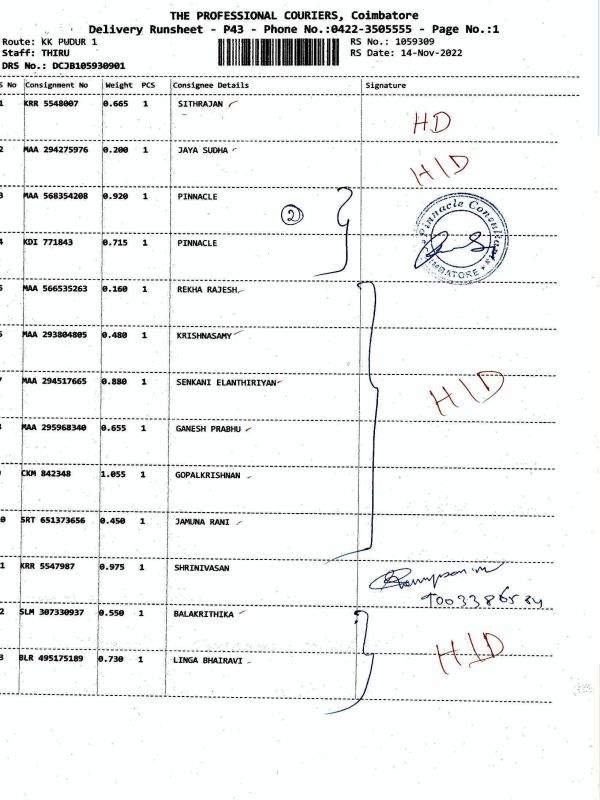 THE PROFESSIONAL COURIERS, Coimbatore
Delivery Runsheet - P43 - Phone No.:0422-3505555 - Page No.:1
Route: KK PUDUR 1 RS No.: 1059309
Staff: THIRU RS Date: 14-Nov-2022
DRS No.: DCJB105930901
S No Consignment No Weight PCS Consignee Details Signature
1 KRR 5548007 0.665 1 SITHRAJAN
HD
2 MAA 294275976 0.200 1 JAYA SUDHA
H|D
3 MAA 568354208 0.920 1 PINNACLE
2
Pinnacle Consultant
4 KDI 771843 0.715 1 PINNACLE
MBATORE
MAA 566535263 0.160 1 REKHA RAJESH
MAA 293804805 0.480 1 KRISHNASAMY
7 MAA 294517665 0.880 1 SENKANI ELANTHIRIYAN
H|D
MAA 295968340 0.655 1 GANESH PRABHU
CKM 842348 1.055 1 GOPALKRISHNAN
0 SRT 651373656 0.450 1 JAMUNA RANI
1 KRR 5547987 0.975 1 SHRINIVASAN
2 SLM 307330937 0.550 1 BALAKRITHIKA
H|D
3 BLR 495175189 0.730 1 LINGA BHAIRAVI